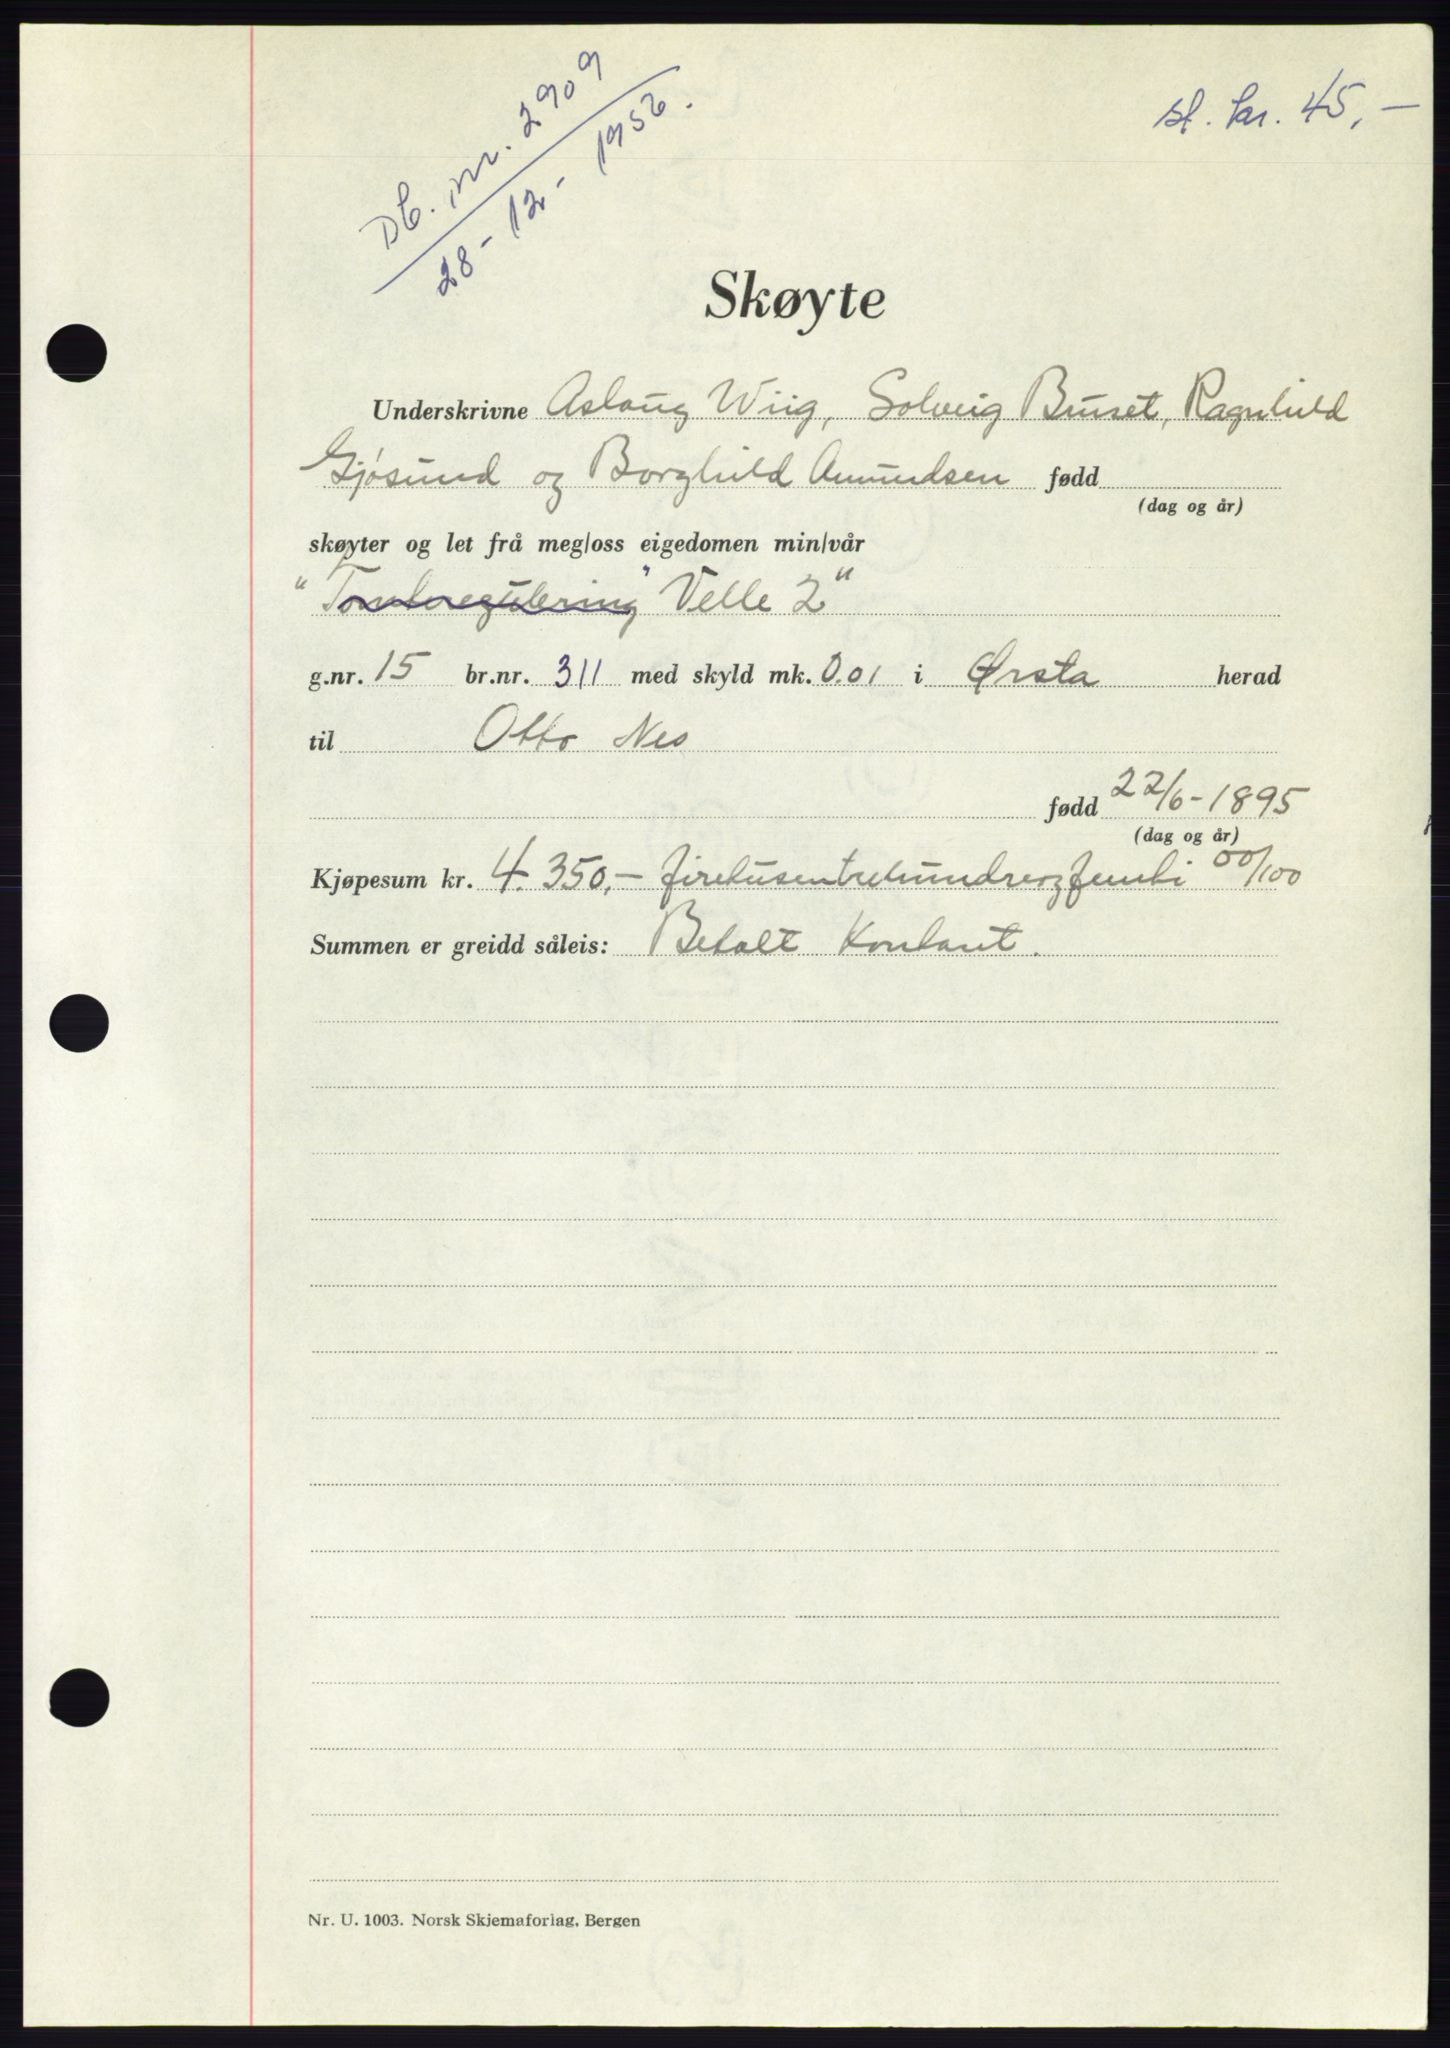 Db. nr. 2909
28-12-1956.
st. kr. 45,-
Skøyte
Underskrivne Aslaug Wiig, Solveig Buset, Ragnhild
Gjøsund og Borghild Amundsen fødd
(dag og år)
skøyter og let frå meg/oss eigedomen min/vår
"Tomteregulering" Velle 2"
g.nr. 15 br.nr. 311 med skyld mk. 0.01 i Ørsta herad
til Otto Nes
fødd 22/6-1895
(dag og år)
Kjøpesum kr. 4.350,- firetusentrehundreogfemti 00/100
Summen er greidd såleis: Betalt Kontant.
Nr. U. 1003. Norsk Skjemaforlag, Bergen